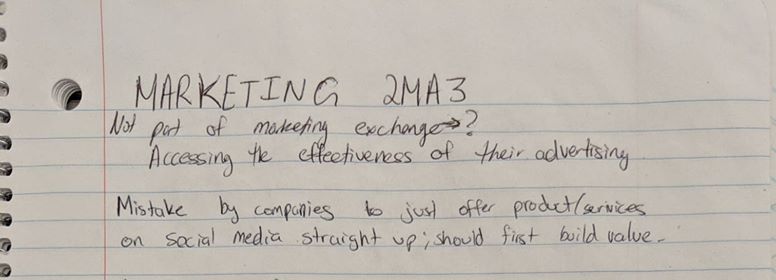 MARKETING 2MA3
Not part of marketing exchange→?
Accessing the effectiveness of their advertising
Mistake by companies to just offer product/services
on social media straight up; should first build value.